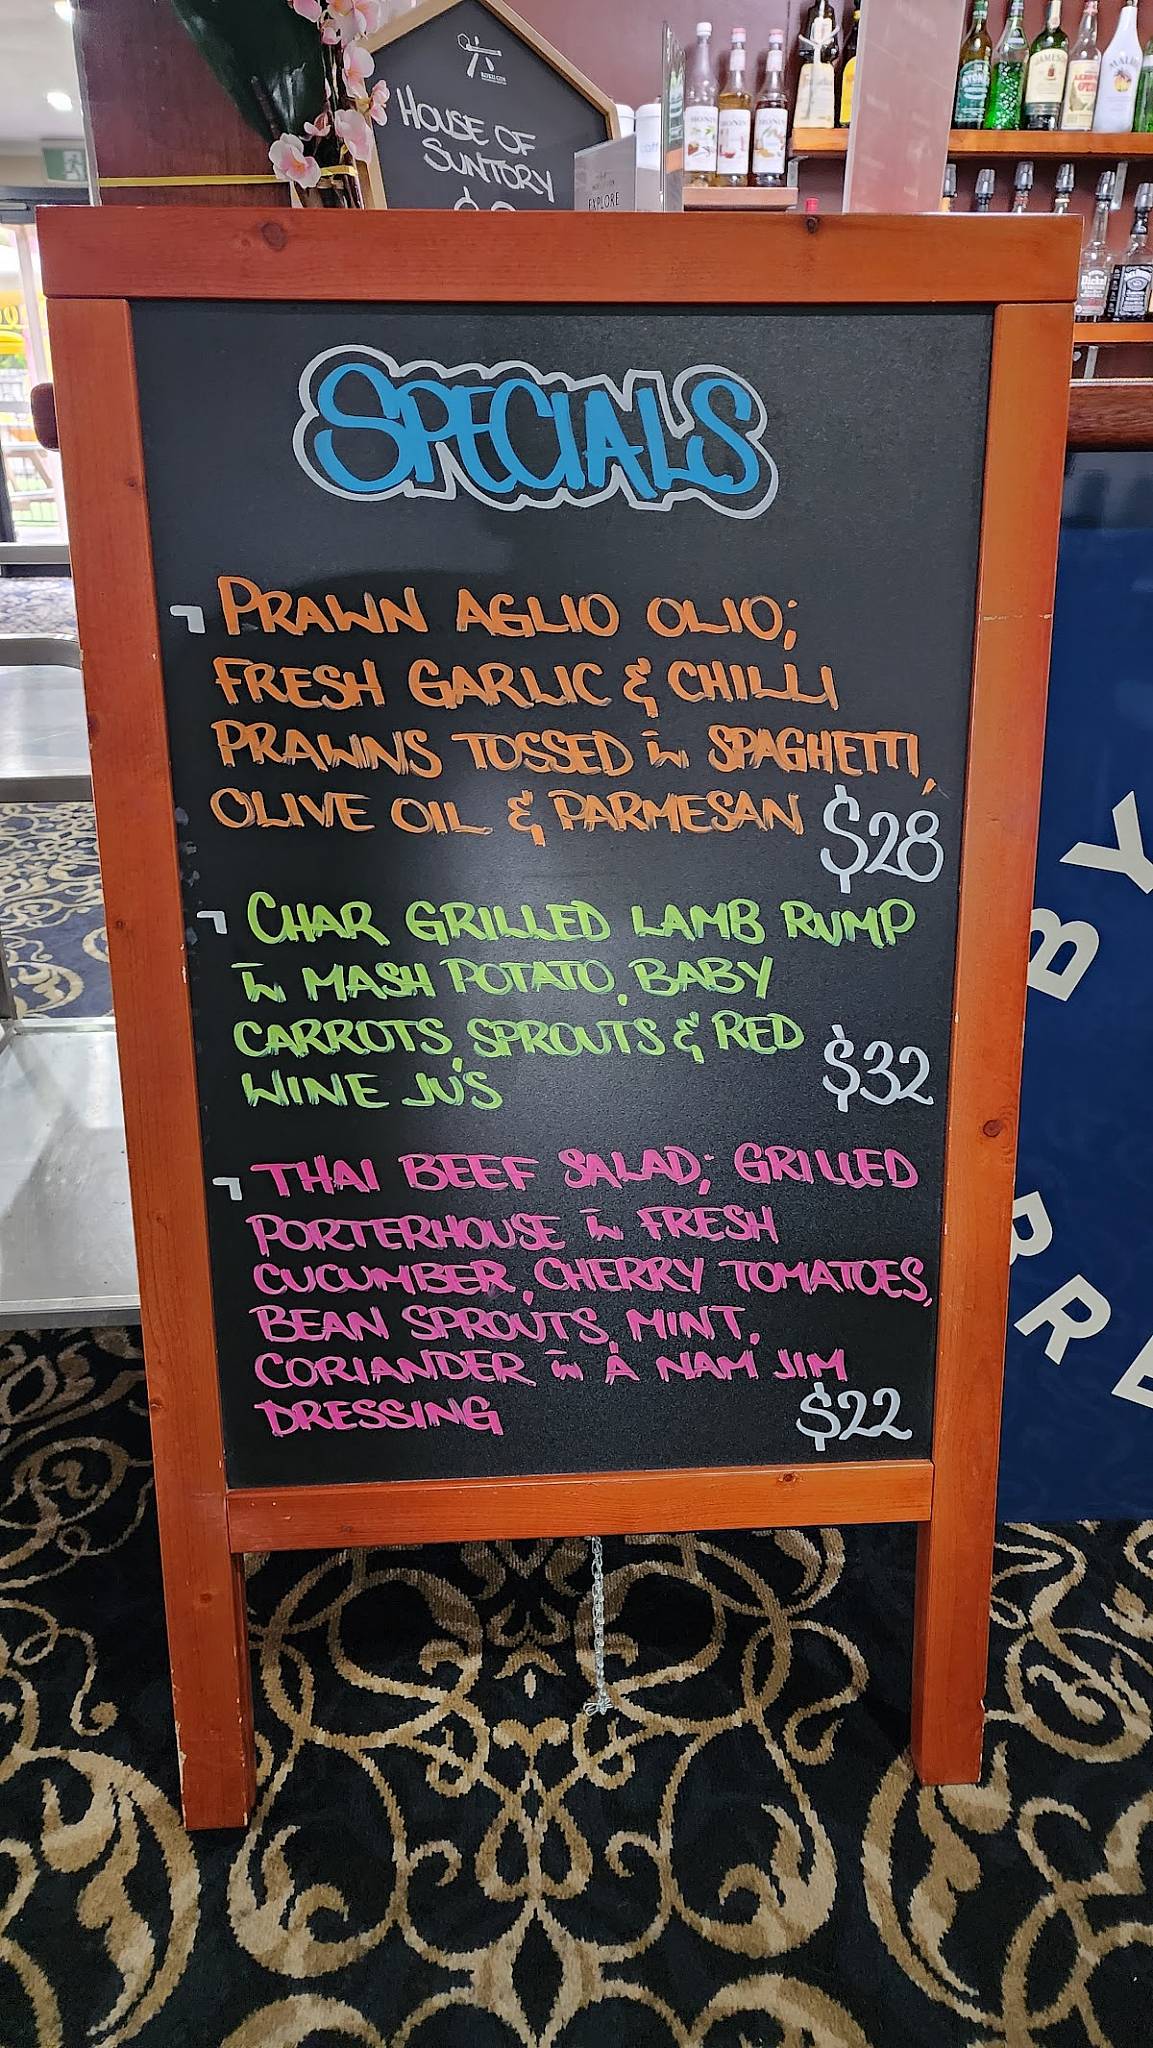 HOUSE OF
SUNTORY
EXPLORE
MONIN
MONIN
MONIN
JAMESON
SPECIALS
PRAWN AGLIO OLIO;
FRESH GARLIC & CHILLI
PRAWNS TOSSED in SPAGHETTI,
OLIVE OIL & PARMESAN $28
CHAR GRILLED LAMB RUMP
in MASH POTATO, BABY
CARROTS, SPROUTS & RED
WINE JUS $32
THAI BEEF SALAD; GRILLED
PORTERHOUSE in FRESH
CUCUMBER, CHERRY TOMATOES,
BEAN SPROUTS, MINT,
CORIANDER in A NAM JIM
DRESSING $22
BY
BRE